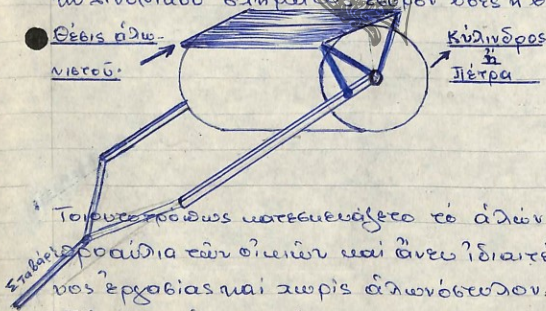 Θέσις ἁλω-
νιστοῦ.
Κύλινδρος
ἢ
Πέτρα
Σταβάρι
Τοιουτοτρόπως κατεσκευάζετο τὸ ἁλών
προαύλια τῶν οἰκιῶν καὶ ἄνευ ἰδιαιτέ
νος ἐργασίας καὶ χωρὶς ἁλωνόστυλον.